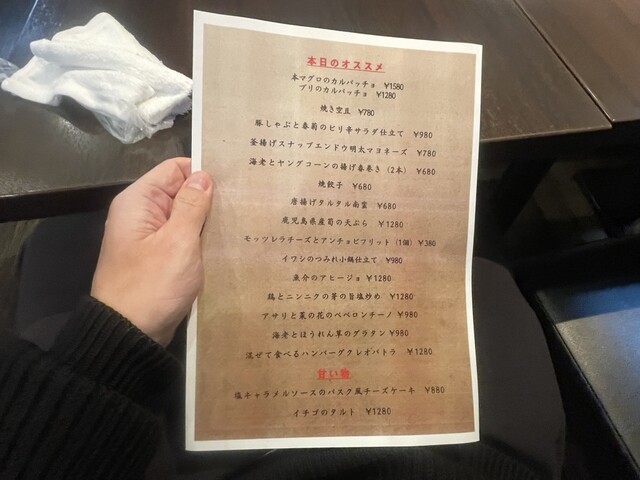 本日のオススメ
本マグロのカルパッチョ ¥1580
ブリのカルパッチョ ¥1280
焼き空豆 ¥780
豚しゃぶと春菊のピリ辛サラダ仕立て ¥980
釜揚げスナップエンドウ明太マヨネーズ ¥780
海老とヤングコーンの揚げ春巻き（2本）¥680
焼餃子 ¥680
唐揚げタルタル南蛮 ¥680
鹿児島県産筍の天ぷら ¥1280
モッツレラチーズとアンチョビフリット（1個）¥380
イワシのつみれ小鍋仕立て ¥980
魚介のアヒージョ ¥1280
鶏とニンニクの芽の旨塩炒め ¥1280
アサリと菜の花のペペロンチーノ ¥980
海老とほうれん草のグラタン ¥980
混ぜて食べるハンバーグクレオパトラ ¥1280
甘い物
塩キャラメルソースのバスク風チーズケーキ ¥880
イチゴのタルト ¥1280